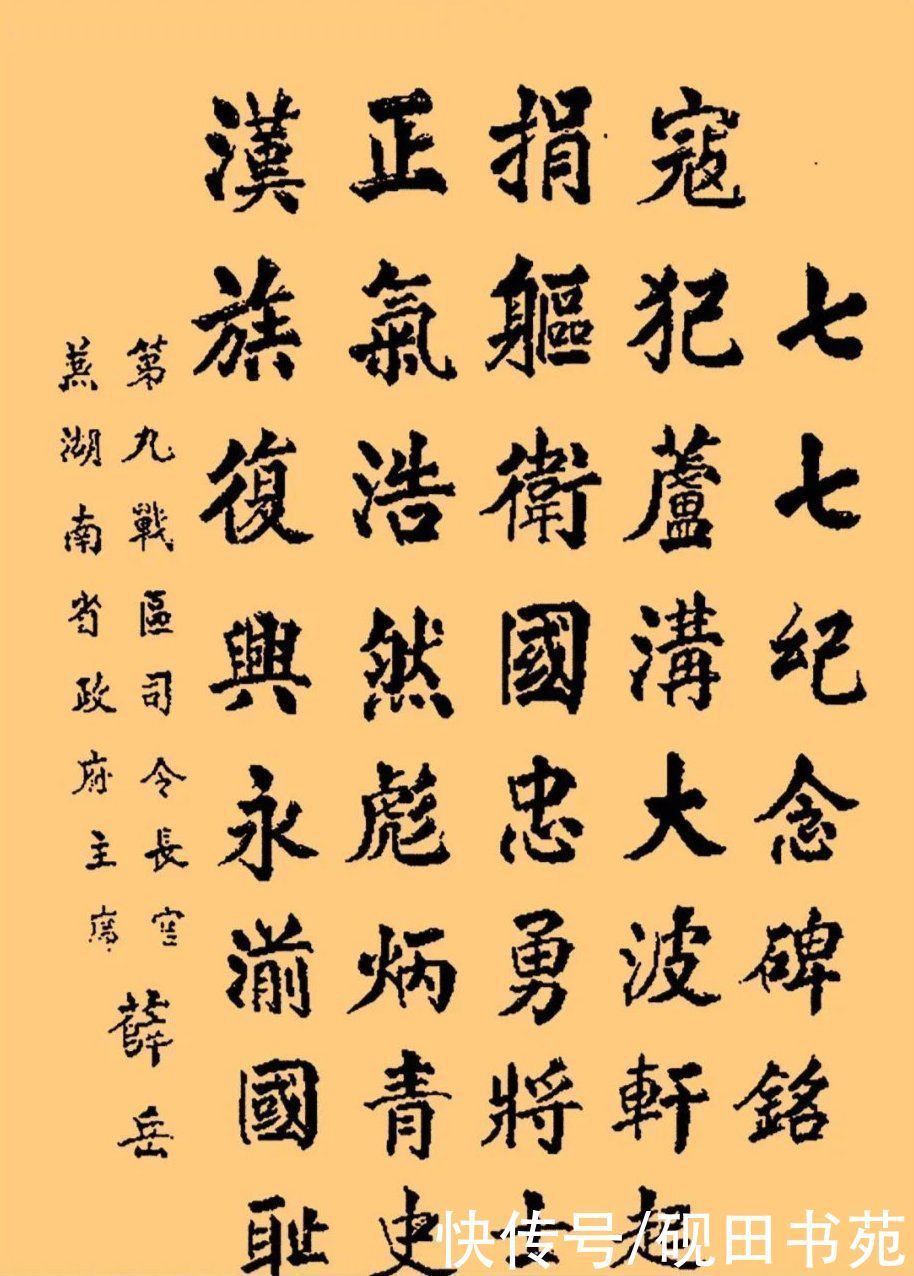 七七紀念碑銘
寇犯蘆溝大波軒起
捐軀衛國忠勇將士
正氣浩然彪炳青史
漢族復興永湔國耻
第九戰區司令長官
兼湖南省政府主席
薛岳
快传号/砚田书苑